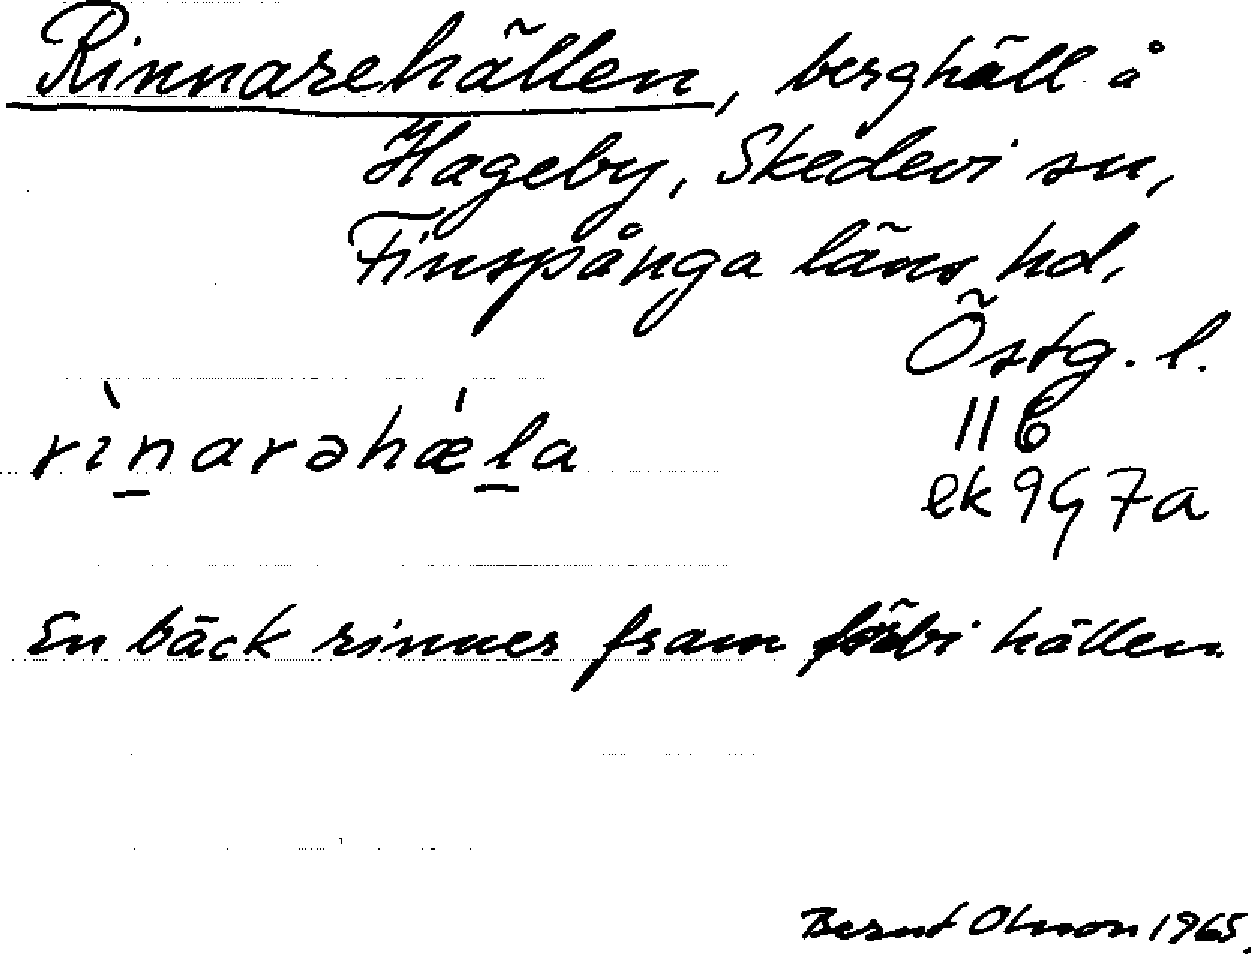 Rinnarehällen, berghäll å
Hageby, Skedevi sn,
Finspånga läns hd.
Östg. l.
rìn̲arəhǽl̲a
116
ek 9G7a
En bäck rinner fram förbi hällen.
Bernt Olsson 1965.